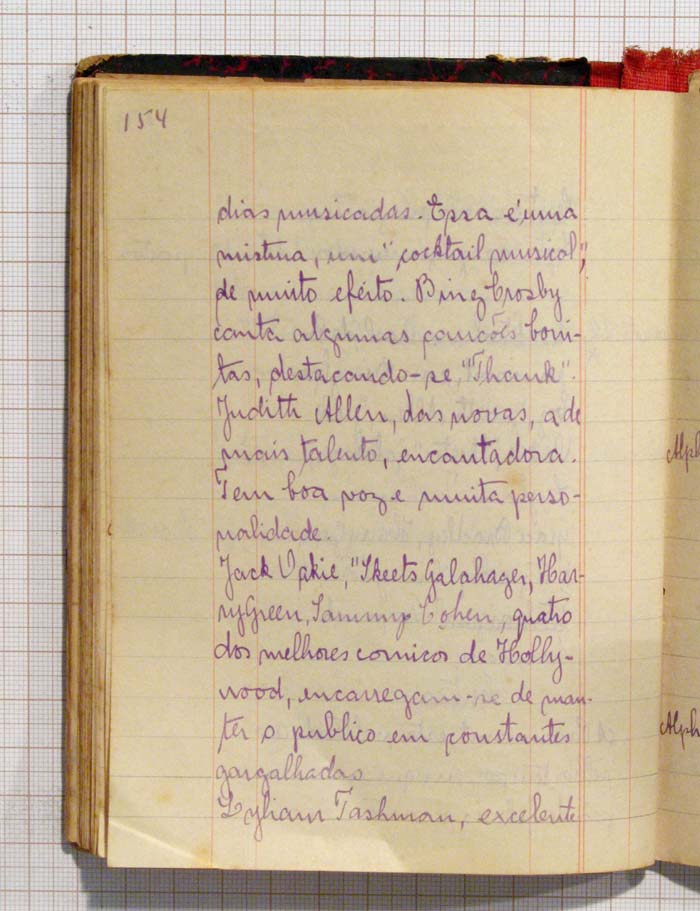 154
dias musicadas. Essa é uma
mistura, um "cocktail musical",
de muito efeito. Bing Crosby
canta algumas canções boni-
tas, destacando-se "Thank".
Judith Allen, das novas, a de
mais talento, encantadora.
Tem boa voz e muita perso-
nalidade.
Jack Oakie, "Skeets Galahager, Har-
ry Green, Sammy Cohen, quatro
dos melhores comicos de Holly-
wood, encarregam-se de man-
ter o publico em constantes
gargalhadas
Lyliam Tashman, excelente
Alph
Alph